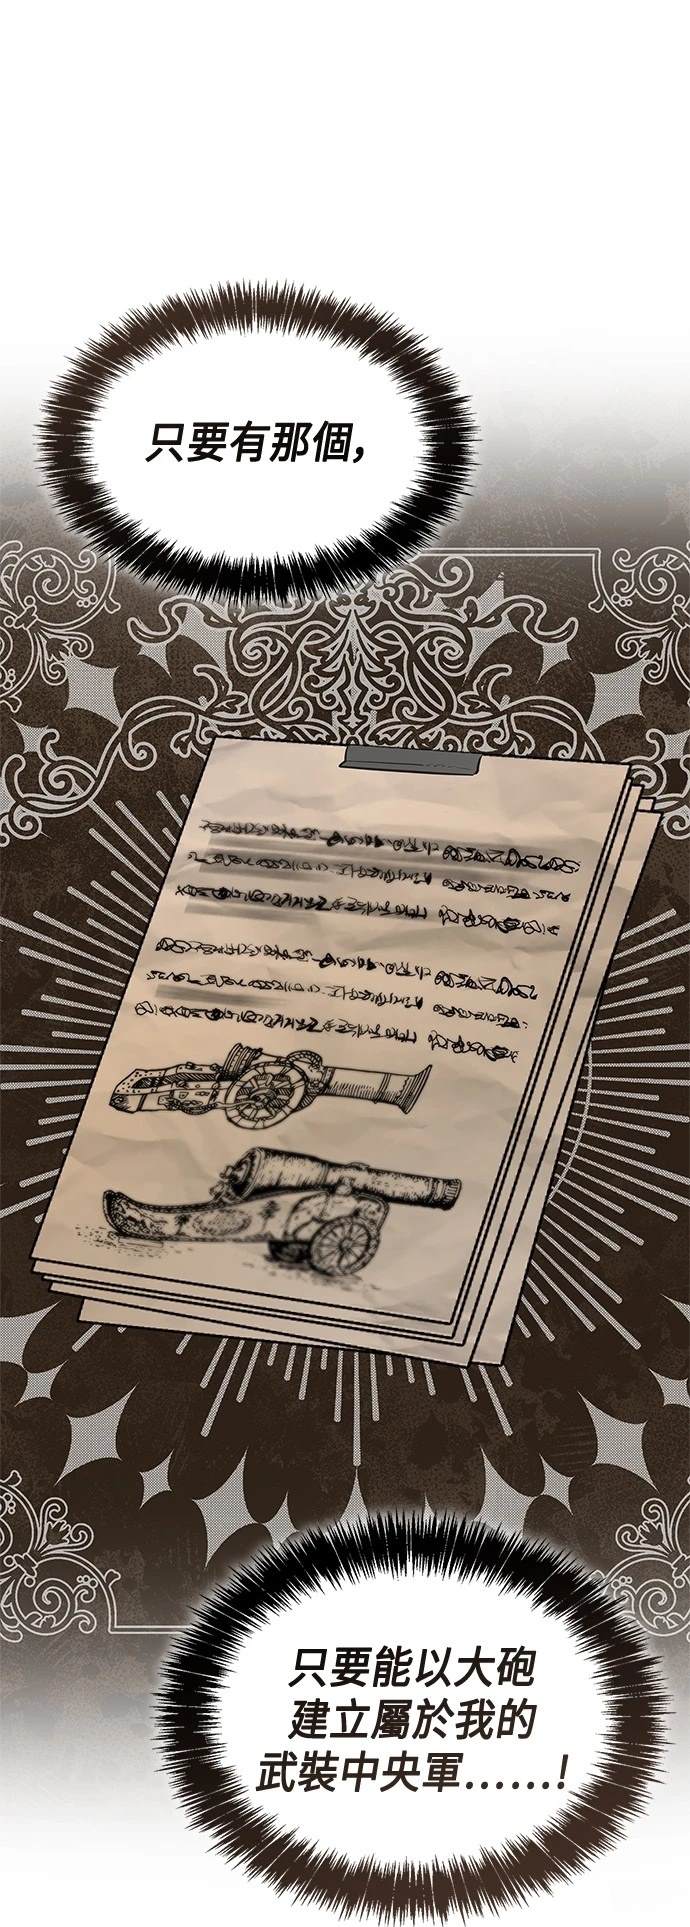 只要有那個,
只要能以大砲
建立屬於我的
武裝中央軍……!